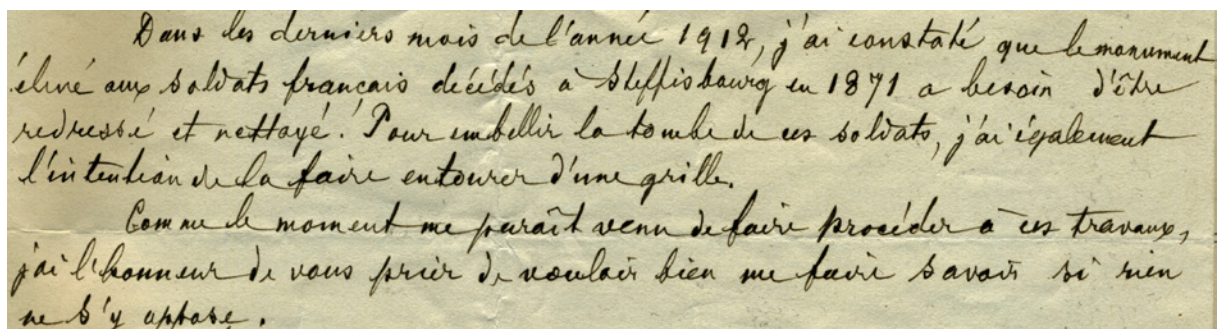 Dans les derniers mois de l'année 1912, j'ai constaté que le monument
élevé aux soldats français décédés à Steffisbourg en 1871 a besoin d'être
redressé et nettoyé. Pour embellir la tombe de ces soldats, j'ai également
l'intention de la faire entourer d'une grille.
Comme le moment me paraît venu de faire procéder à ces travaux,
j'ai l'honneur de vous prier de vouloir bien me faire savoir si rien
ne s'y oppose.